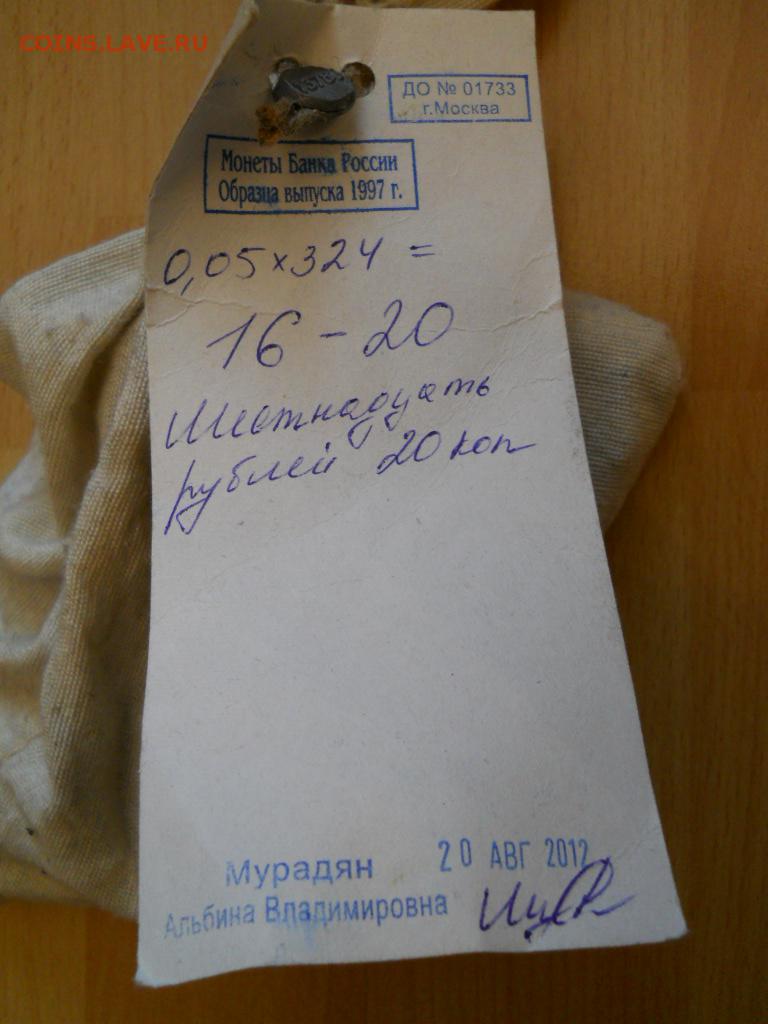 COINS.LAVE.RU
ДО № 01733
г.Москва
Монеты Банка России
Образца выпуска 1997 г.
0,05×324 =
16-20
Шестнадцать
рублей 20 коп
Мурадян
20 АВГ 2012
Альбина Владимировна